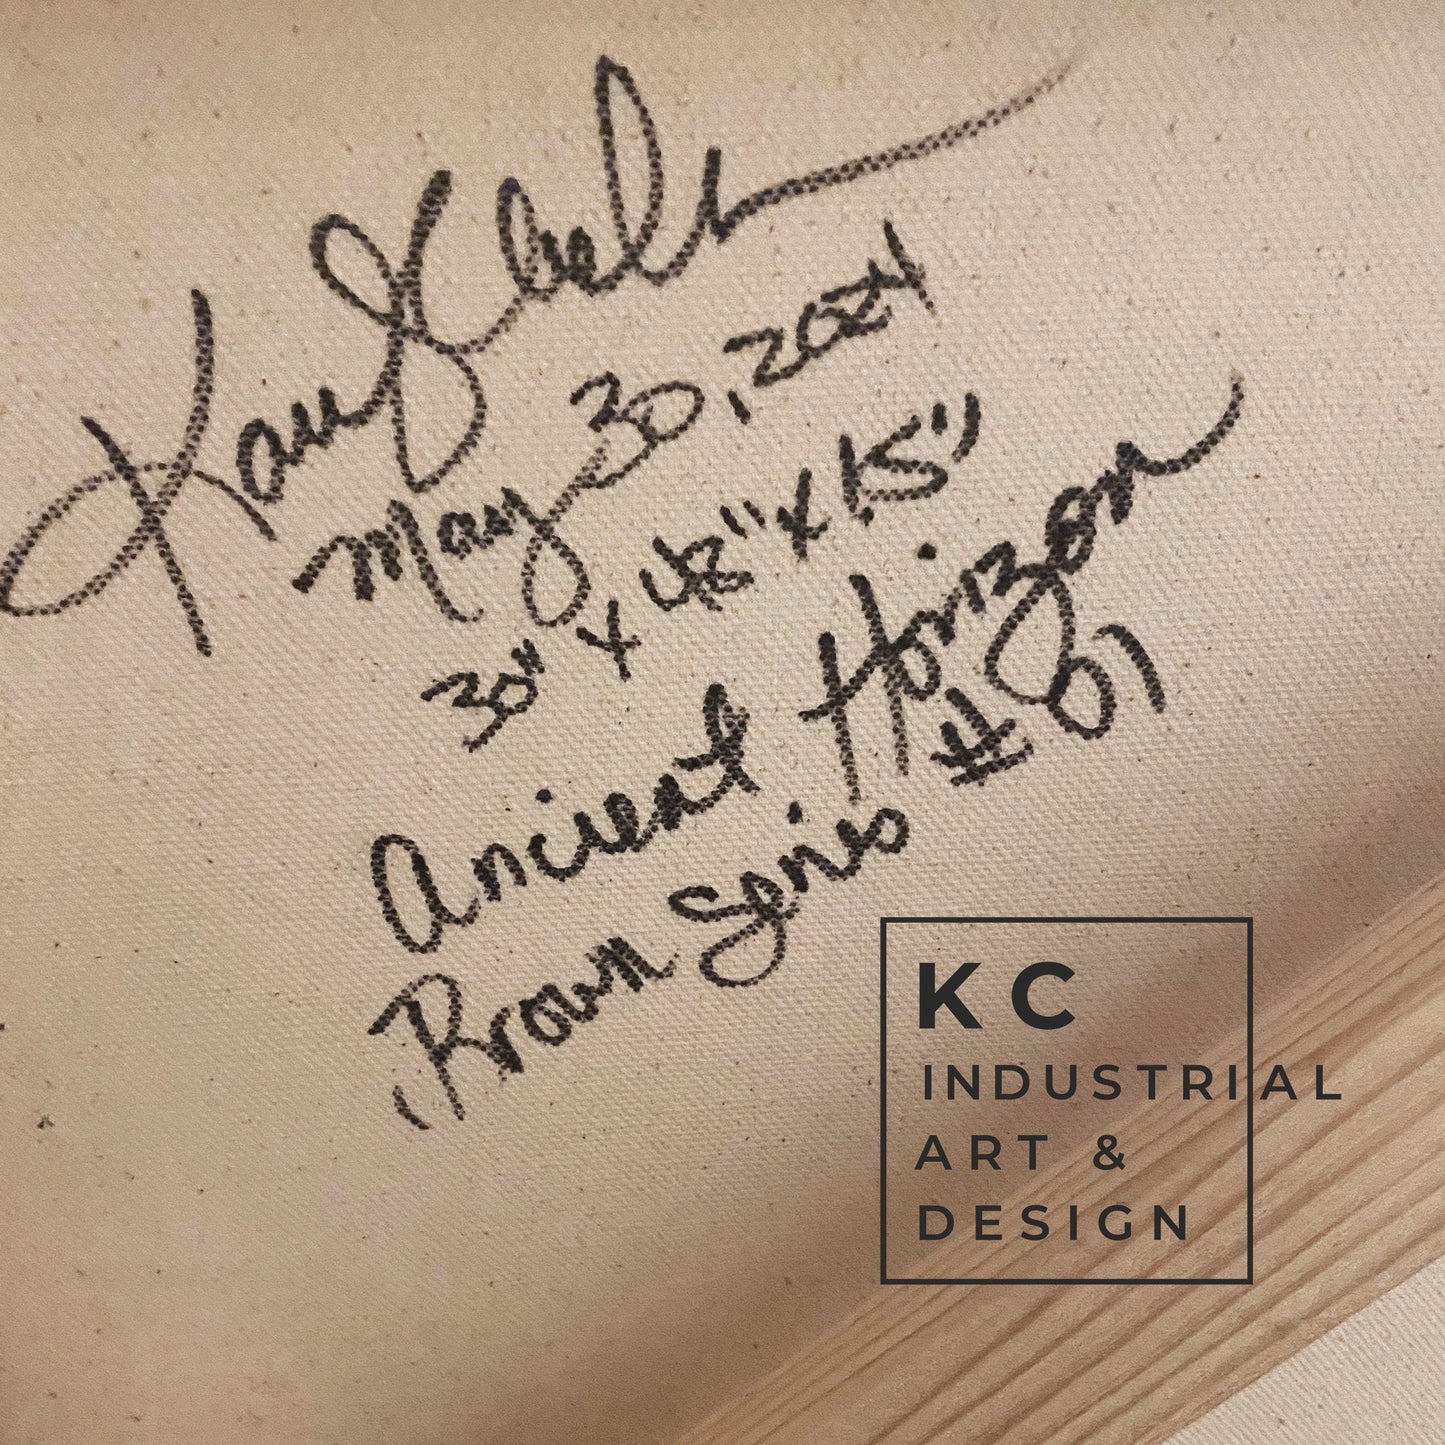 May 30, 2024
30" x 48" x 1.5"
Ancient Horizon
Brown Series #01
KC
INDUSTRIAL
ART &
DESIGN